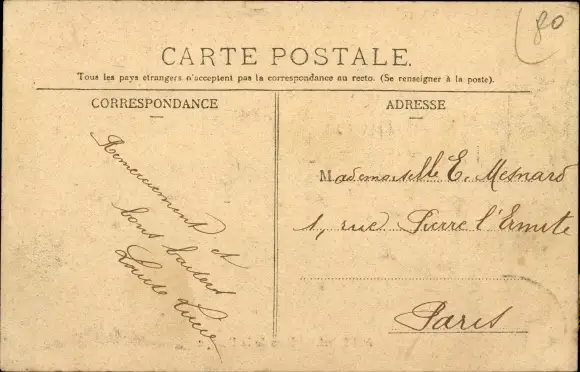 80
CARTE POSTALE.
Tous les pays étrangers n'acceptent pas la correspondance au recto. (Se renseigner à la poste).
CORRESPONDANCE
Remerciement et
bons baisers
Lucie
ADRESSE
Mademoiselle E. Mesnard
1, rue Pierre l'Ermite
Paris